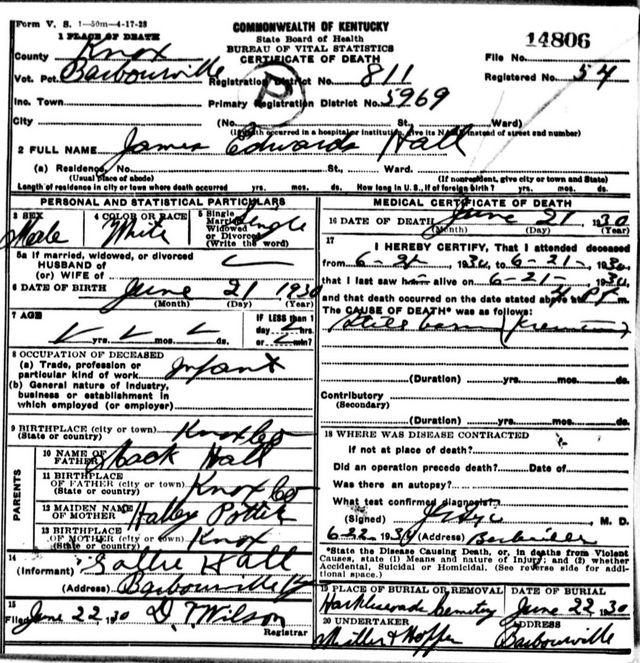 Form V. S. 1—50m—4-17-28
COMMONWEALTH OF KENTUCKY
State Board of Health
BUREAU OF VITAL STATISTICS
CERTIFICATE OF DEATH
14806
1 PLACE OF DEATH
County Knox
File No.
Vot. Pct. Barbourville
Registration District No. 811
Registered No. 54
Inc. Town
Primary Registration District No. 5969
City (No. St., Ward)
(If death occurred in a hospital or institution, give its NAME instead of street and number)
2 FULL NAME James Edwards Hall
(a) Residence, No. St., Ward.
(Usual place of abode) (If nonresident, give city or town and State)
Length of residence in city or town where death occurred yrs. mos. ds. How long in U.S., if of foreign birth? yrs. mos. ds.
PERSONAL AND STATISTICAL PARTICULARS
3 SEX 4 COLOR OR RACE 5 Single
Married
Widowed
or Divorced
(Write the word)
Male White Single
5a If married, widowed, or divorced
HUSBAND of
(or) WIFE of
6 DATE OF BIRTH June 21 1930
(Month) (Day) (Year)
7 AGE IF LESS than 1
day hrs.
yrs. mos. ds. or min?
8 OCCUPATION OF DECEASED
(a) Trade, profession or
particular kind of work Infant
(b) General nature of industry,
business or establishment in
which employed (or employer)
9 BIRTHPLACE (city or town) Knox Co
(State or country)
PARENTS
10 NAME OF
FATHER Mack Hall
11 BIRTHPLACE
OF FATHER (city or town) Knox Co
(State or country)
12 MAIDEN NAME
OF MOTHER Halley Potter
13 BIRTHPLACE
OF MOTHER (city or town) Knox
(State or country)
14
(Informant) Sallie Hall
(Address) Barbourville Ky
15
Filed June 22 1930 D. T. Wilson
Registrar
MEDICAL CERTIFICATE OF DEATH
16 DATE OF DEATH June 21 1930
(Month) (Day) (Year)
17
I HEREBY CERTIFY, That I attended deceased
from 6-21 1930, to 6-21- 1930,
that I last saw h alive on 6-21- 1930
and that death occurred on the date stated above at P.
The CAUSE OF DEATH* was as follows:
Still born
(Duration) yrs. mos. ds.
Contributory
(Secondary)
(Duration) yrs. mos. ds.
18 WHERE WAS DISEASE CONTRACTED
if not at place of death?
Did an operation precede death? Date of
Was there an autopsy?
What test confirmed diagnosis?
(Signed) M. D.
6-22 1930 (Address) Barbourville
*State the Disease Causing Death, or, in deaths from Violent
Causes, state (1) Means and nature of Injury; and (2) whether
Accidental, Suicidal or Homicidal. (See reverse side for addi-
tional space.)
19 PLACE OF BURIAL OR REMOVAL DATE OF BURIAL
Cemetery June 22 1930
20 UNDERTAKER ADDRESS
Miller & Hopper Barbourville